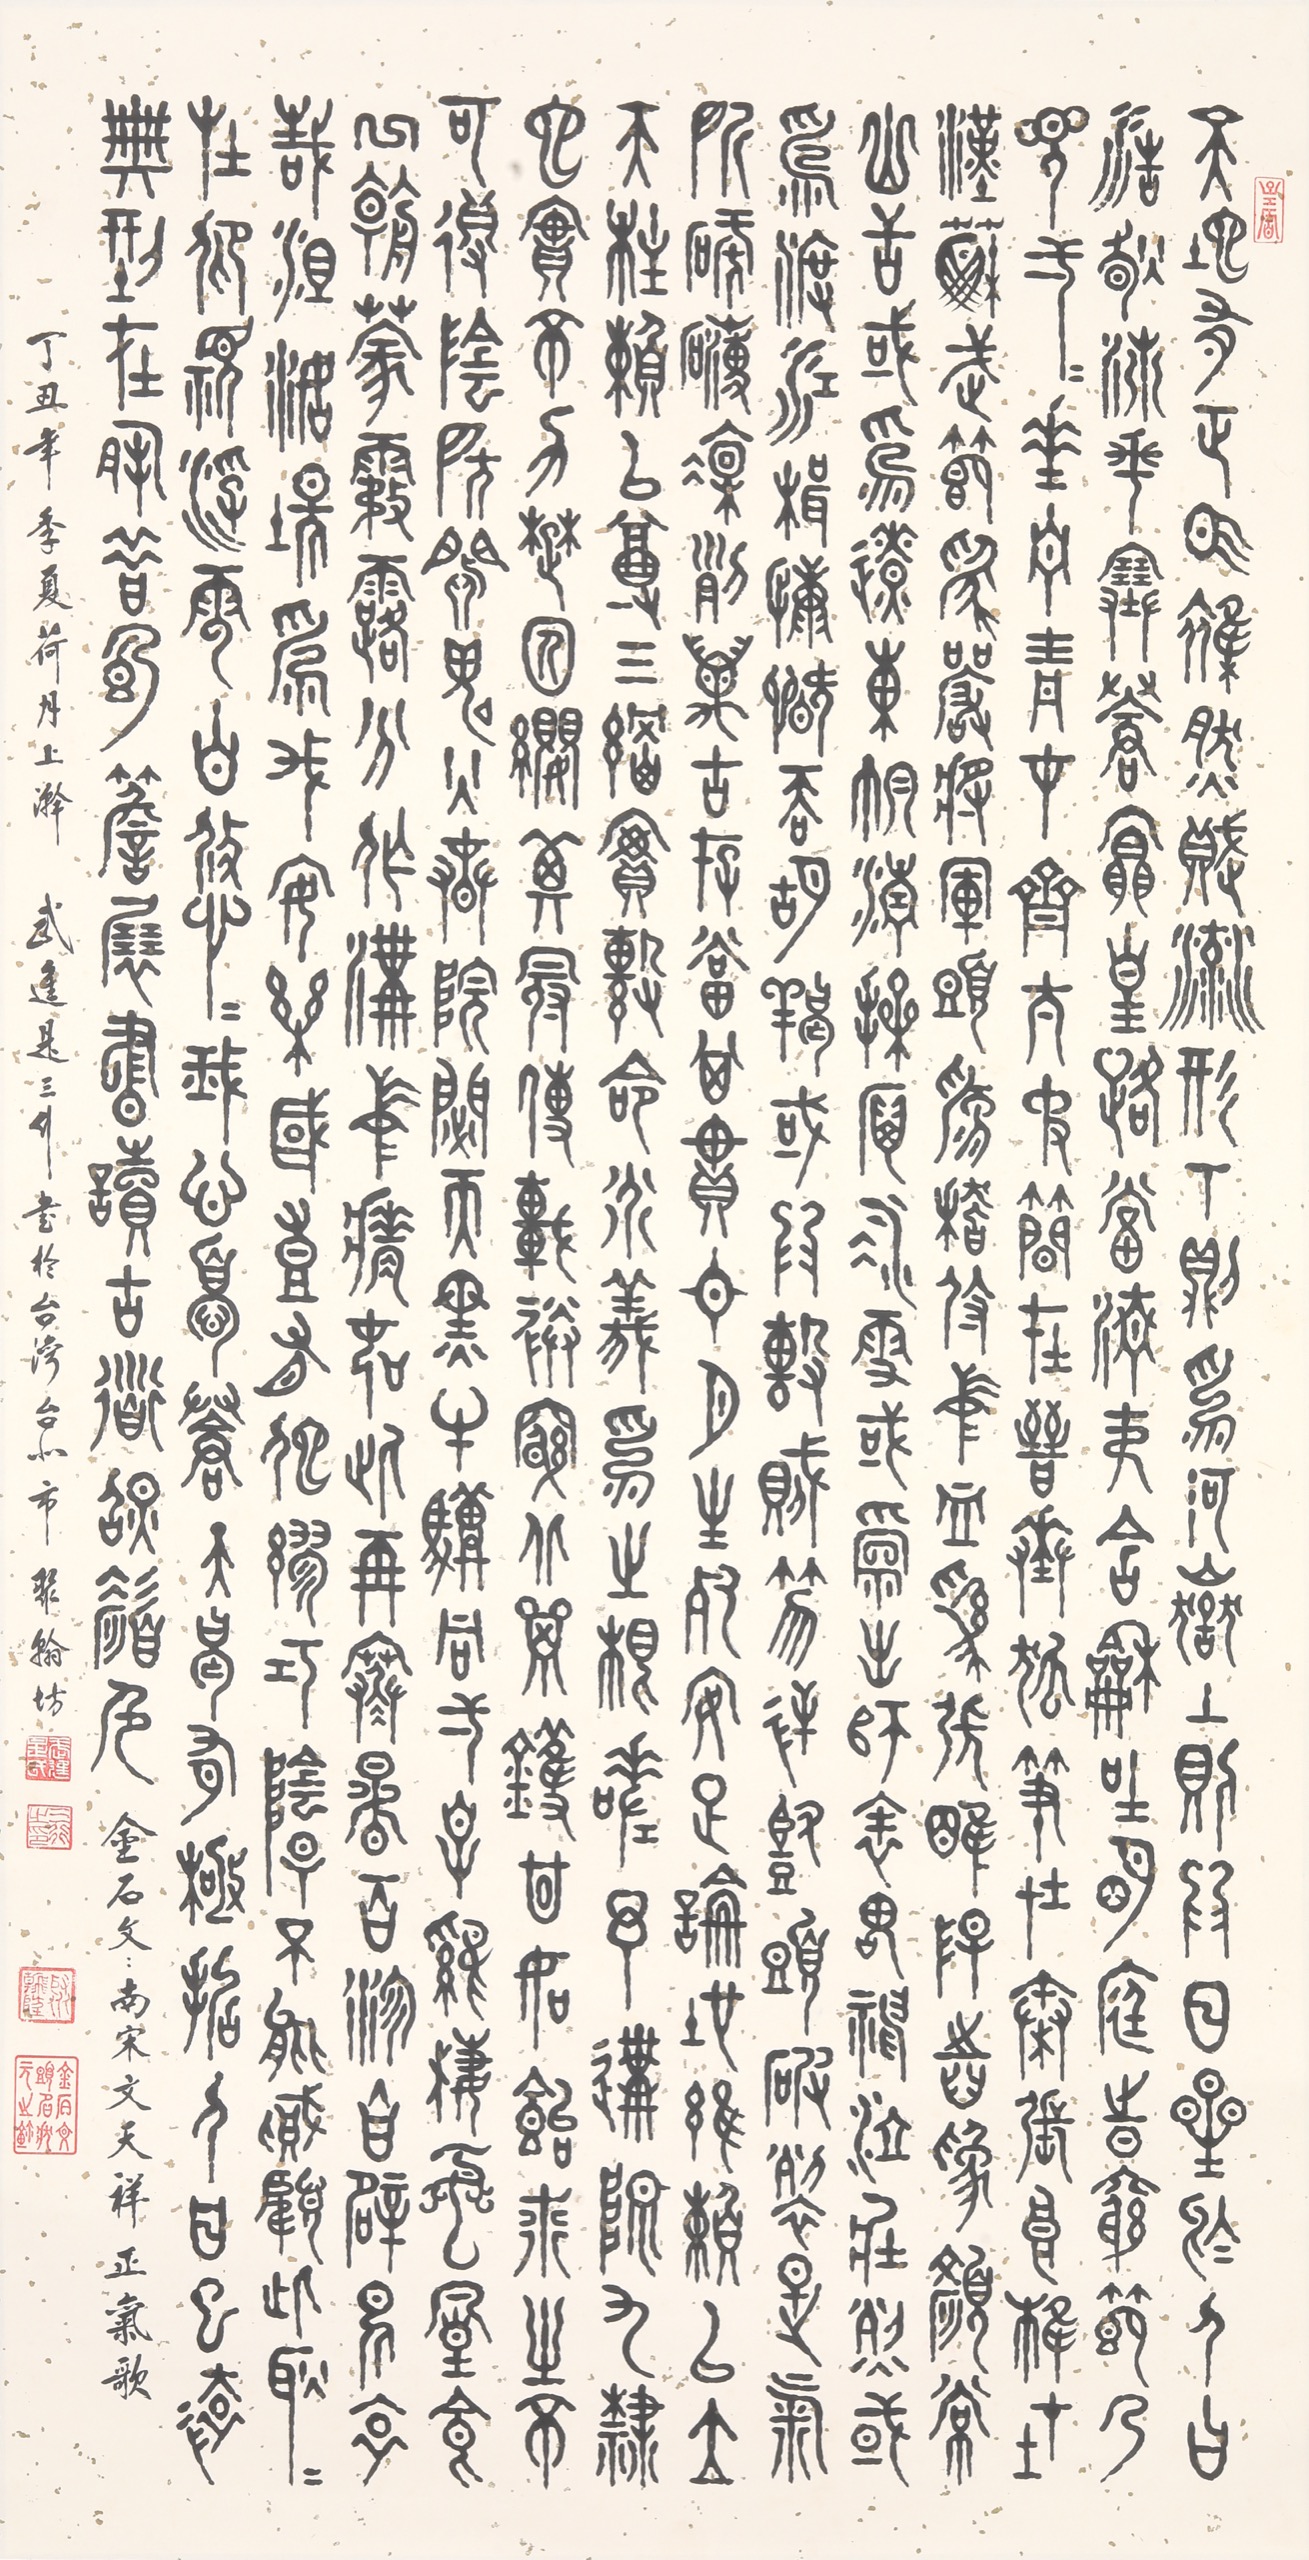 天地有正氣雜然賦流形下則為河嶽上則為日星於人曰
浩然沛乎塞蒼冥皇路當清夷含和吐明庭時窮節乃
見一一垂丹青在齊太史簡在晉董狐筆在秦張良椎在
漢蘇武節為嚴將軍頭為嵇侍中血為張睢陽齒為顏常
山舌或為遼東帽清操厲冰雪或為出師表鬼神泣壯烈或
為渡江楫慷慨吞胡羯或為擊賊笏逆豎頭破裂是氣
所磅礴凜烈萬古存當其貫日月生死安足論地維賴以立
天柱賴以尊三綱實繫命道義為之根嗟予遘陽九隸
也實不力楚囚纓其冠傳車送窮北鼎鑊甘如飴求之不
可得陰房闃鬼火春院閟天黑牛驥同一皂雞棲鳳凰食
一朝蒙霧露分作溝中瘠如此再寒暑百沴自辟易哀
哉沮洳場為我安樂國豈有他繆巧陰陽不能賊顧此耿耿
在仰視浮雲白悠悠我心悲蒼天曷有極哲人日已遠
典型在夙昔風簷展書讀古道照顏色 金石文:南宋文天祥正氣歌
丁丑年季夏荷月上澣 武進是三升書於台灣台北市翠翰坊